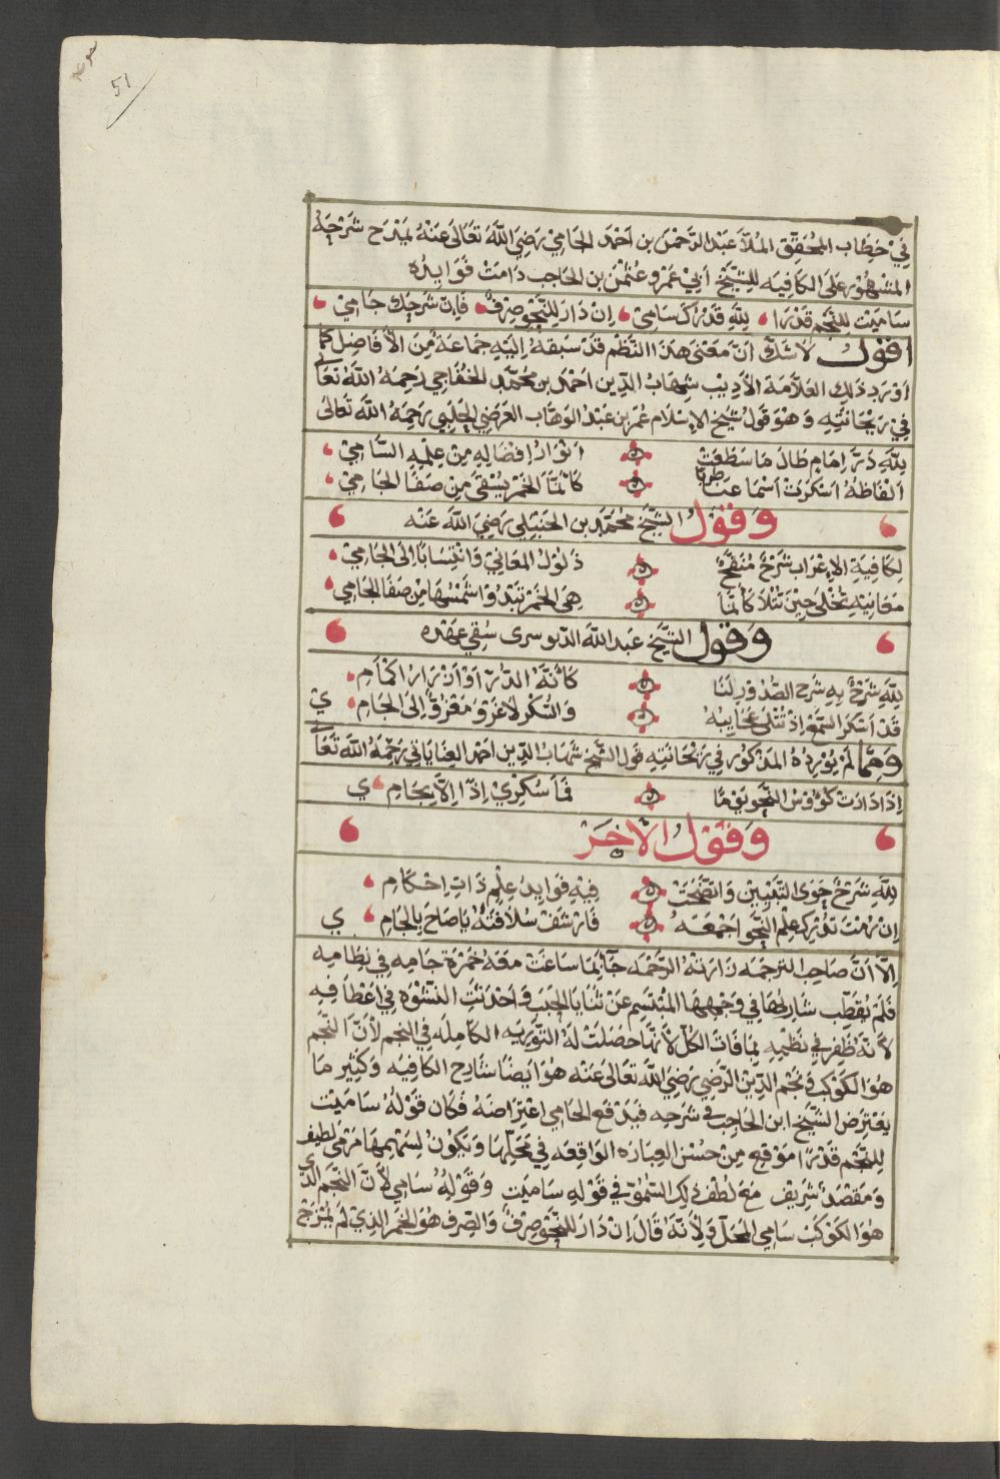 51
فِيْ خطَاب المُحَقِّق المُلاَّ عَبْد الرَّحْمٰن بن اَحْمَد الجَامِيْ رَضِيَ اللّٰهُ تَعَالٰى عَنْهُ يَمْدَح شَرْحَهُ
المَشْهُوْر عَلَى الكَافِيَه للشَّيْخ اَبِيْ عَمْرو عُثْمٰن بن الحَاجب دَامَتْ فَوَايدُه
سَامَيْت للنَّجم قَدْرًا للّٰهِ قَدْرُكَ سَامِيْ اِنْ دَارَ للنَّحْو صِرْفٌ فَاِنّ شَرْحَكَ جَامِيْ
اقول لاَ شَكَّ اَنّ مَعْنَى هٰذَا النَّظْم قَدْ سَبَقَهُ اِلَيْهِ جَمَاعَةٌ مِنَ الاَفَاضِل كَمَا
اَوْرَدَ ذٰلِكَ العَلاَّمَة الاَدِيْب شِهَابُ الدِّين اَحْمَد بن مُحَمَّد الخَفَاجِي رَحِمَهُ اللّٰهُ تَعَا
فِي رَيْحَانَتِهِ وَهُوَ قَوْلُ شَيْخ الاِسْلاَم عُمَر بن عَبْد الوَهَّاب العَرَضِي الحَلَبِي رَحِمَهُ اللّٰه تَعَالٰى
للّٰهِ دَرّ اِمَامٍ طَالَ مَا سَطَعَتْ اَنْوَارُ اِفْضَالِهِ مِنْ عِلْمِهِ السَّامِيْ
اَلفَاظُهُ اَسْكَرَتْ اَسْمَاعَنَا طربًا كَاَنَّهَا الخَمْرُ يُسْقٰى مِنْ صَفَا الجَامِيْ
وَقَوْلُ الشَّيْخ مُحَمَّد بن الحَنْبَلِي رَضِيَ اللّٰه عَنْه
لِكَافِيَةِ الاِعْرَاب شَرْحٌ مُنَقَّحٌ ذَلُوْلُ المَعَانِيْ وَانْتِسَابًا اِلَى الجَامِيْ
مَعَانِيْهِ تُجْلٰى حِيْنَ تُتْلاَ كَاَنَّمَا هِيَ الخَمْرُ تَبْدُوْ شَمْسُهَا مِنْ صَفَا الجَامِيْ
وَقَوْل الشَّيْخ عَبد اللّٰه الدّنوسرى سُقِيَ عَهْدُه
للّٰهِ شَرْحٌ بِهِ شَرْح الصُّدُوْرِ لَنَا كَاَنَّهُ الدُّرّ اَوْ اَزْرَارُ اكْمَامِ
قَدْ اَسْكَرَ السَّمْعَ اِذْ تُتْلٰى عَجَايبُهُ وَالسُّكْر لاَ غَرْوَ مَعْزُوٌّ اِلَى الجَامِ ي
وَمِمَّا لَمْ يُوْرِدْهُ المَذكُوْر فِيْ رَيْحَانَتِهِ قَول الشَّيْخ شِهَابُ الدِّين احمَد العِنَايَاتي رَحِمَهُ اللّٰه تَعَا
اِذَا دَارَتْ كُؤُوْسُ النَّحْو يَوْمًا فَمَا سُكْرِيْ اِذًا اِلاَّ بِجَامِ ي
وَقَوْلُ الاٰخَر
للّٰهِ شَرْحٌ حَوَى التَّبْيِيْن وَاتَّضَحَتْ فِيْهِ فَوَايِدُ عِلْمٍ ذَاتِ اِحْكَامِ
اِنْ رُمْتَ تُدْرِك عِلْمَ النَّحْو اَجْمَعَهُ فَارْشُفْ سُلاَفَتَهُ يَا صَاحِ بِالجَامِ ي
اِلاَّ اَنَّ صَاحِبَ الترجَمه زَارَتْهُ الرَّحْمَه جَآئِمَا سَاغَتْ مَعَهُ خَمْرَة جَامِه فِي نظَامِه
فَلَمْ يُقَطِّب شَارِبُهَا فِي وَجْهِهَا المُبْتَسِم عَنْ ثَنَايَا الحَبَب وَاَحْدَثَتْ النَّشْوَه فِي اَعْطَافِه
لاَنَّهُ ظَفِرَ فِي نَظْمِهِ بِمَا فَاتَ الكُلّ لاَنَّهَا حَصَلَتْ لَهُ التَّوْريَه الكَامِلَه فِي النجم لاَنَّ النجَم
هُوَ الكَوْكَب وَنَجْم الدِّيْن الرَّضِي رَضِيَ اللّٰه تَعَالٰى عَنْه هُوَ اَيضًا شَارِح الكَافِيَه وَكَثِيْر مَا
يَعْتَرِض الشَّيْخ ابن الحَاجِب في شَرحِهِ فَيَدْفَع الجَامِي اعْتِرَاضَهُ فَكَان قَوْلُهُ سَامَيْت
لِلنَّجْم قَدْرًا مَوْقعٌ مِنْ حُسْن العِبَارَه الوَاقِعَه فِي مَحَلِّهَا وَيَكُوْنُ لِسَهْمِهَا مَرْمَى لطيف
وَمَقْصَد شَرِيْف مَعَ لُطْف ذٰلِكَ السُّمُوّ فِي قَوْلِهِ سَامَيْت وَقَوْلِهُ سَامِي لاَنَّ النَّجْمَ الَّذِي
هُوَ الكَوْكَبُ سَامِي المَحَلّ وَلاَنَّهُ قَالَ اِنْ دَارَ للنَّحْوِ صِرْفٌ وَالصِّرف هُوَ الخَمْر الذِيْ لَمْ يُمْزَجْ